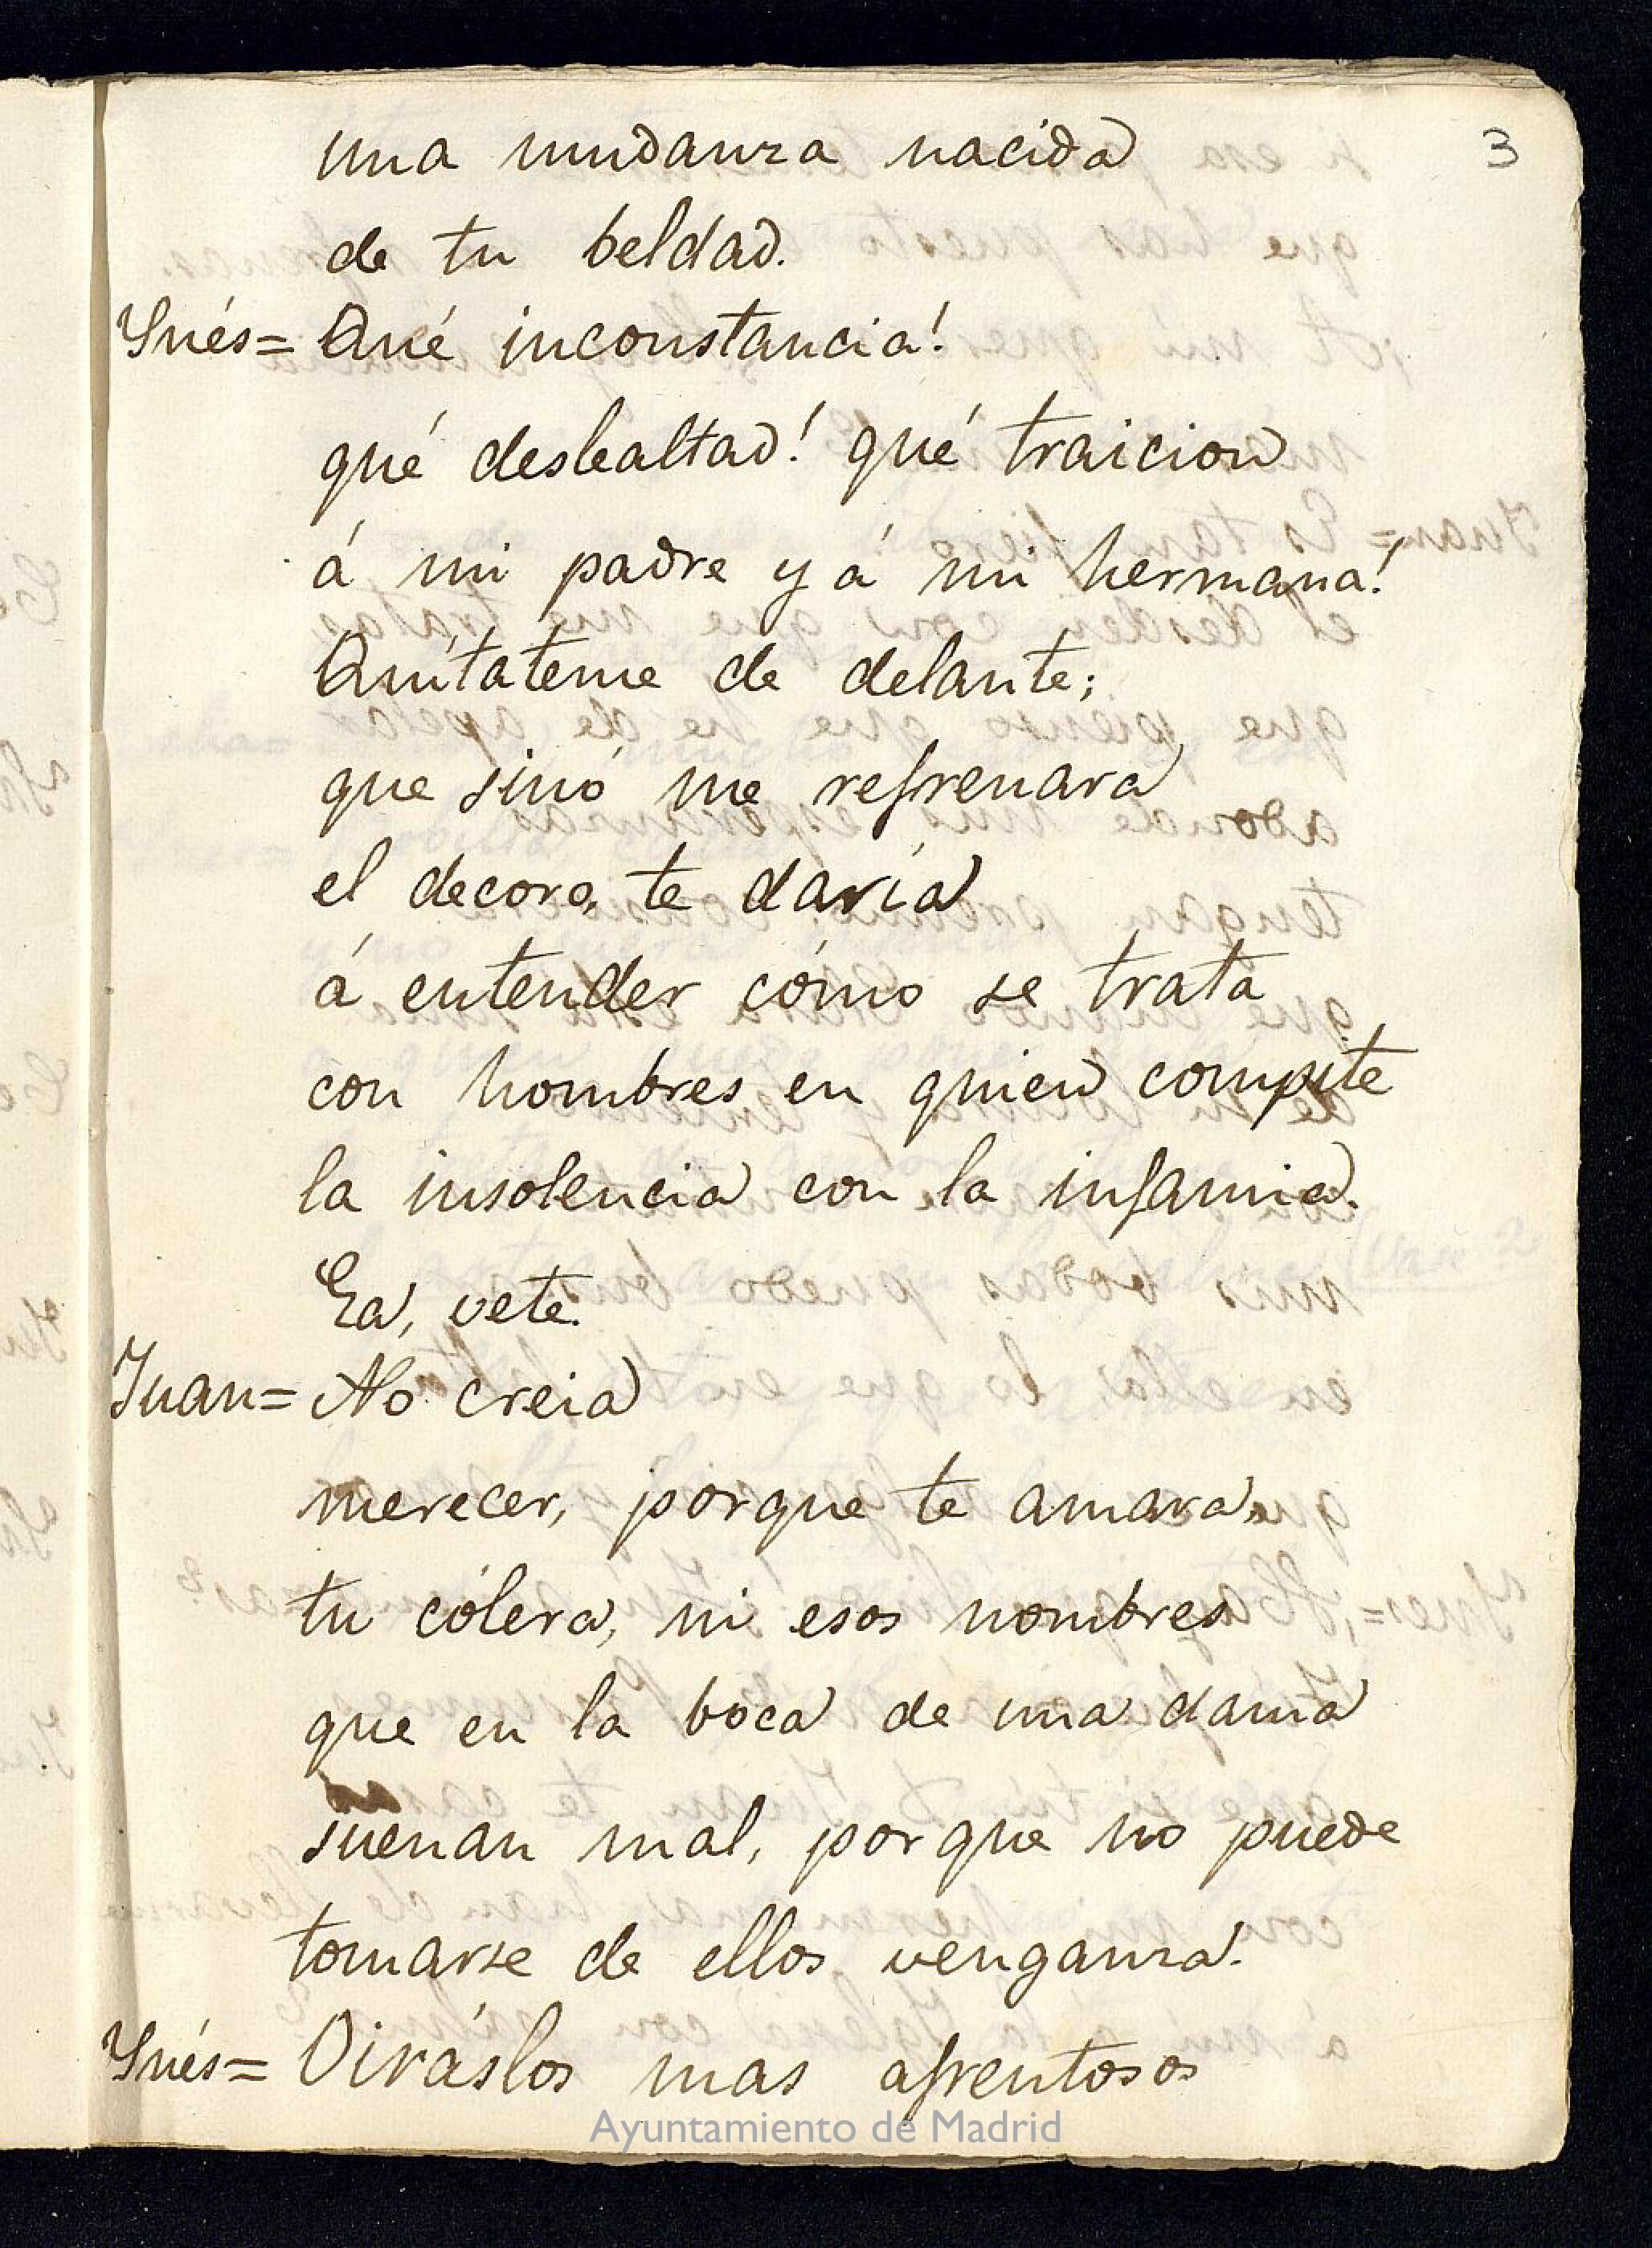 3
una mudanza nacida
de tu beldad.
Ynés= Qué inconstancia!
qué deslealtad! qué traicion
á mi padre y á mi hermana!
Quítateme de delante;
que sinó me refrenara
el decoro, te daría
á entender cómo se trata
con hombres en quien compite
la insolencia con la infamia.
Ea, vete.
Juan= No creia
merecer, porque te amara,
tu cólera, ni esos nombres
que en la boca de una dama
suenan mal, porque no puede
tomarse de ellos venganza.
Ynés= Oiráslos mas afrentosos
Ayuntamiento de Madrid